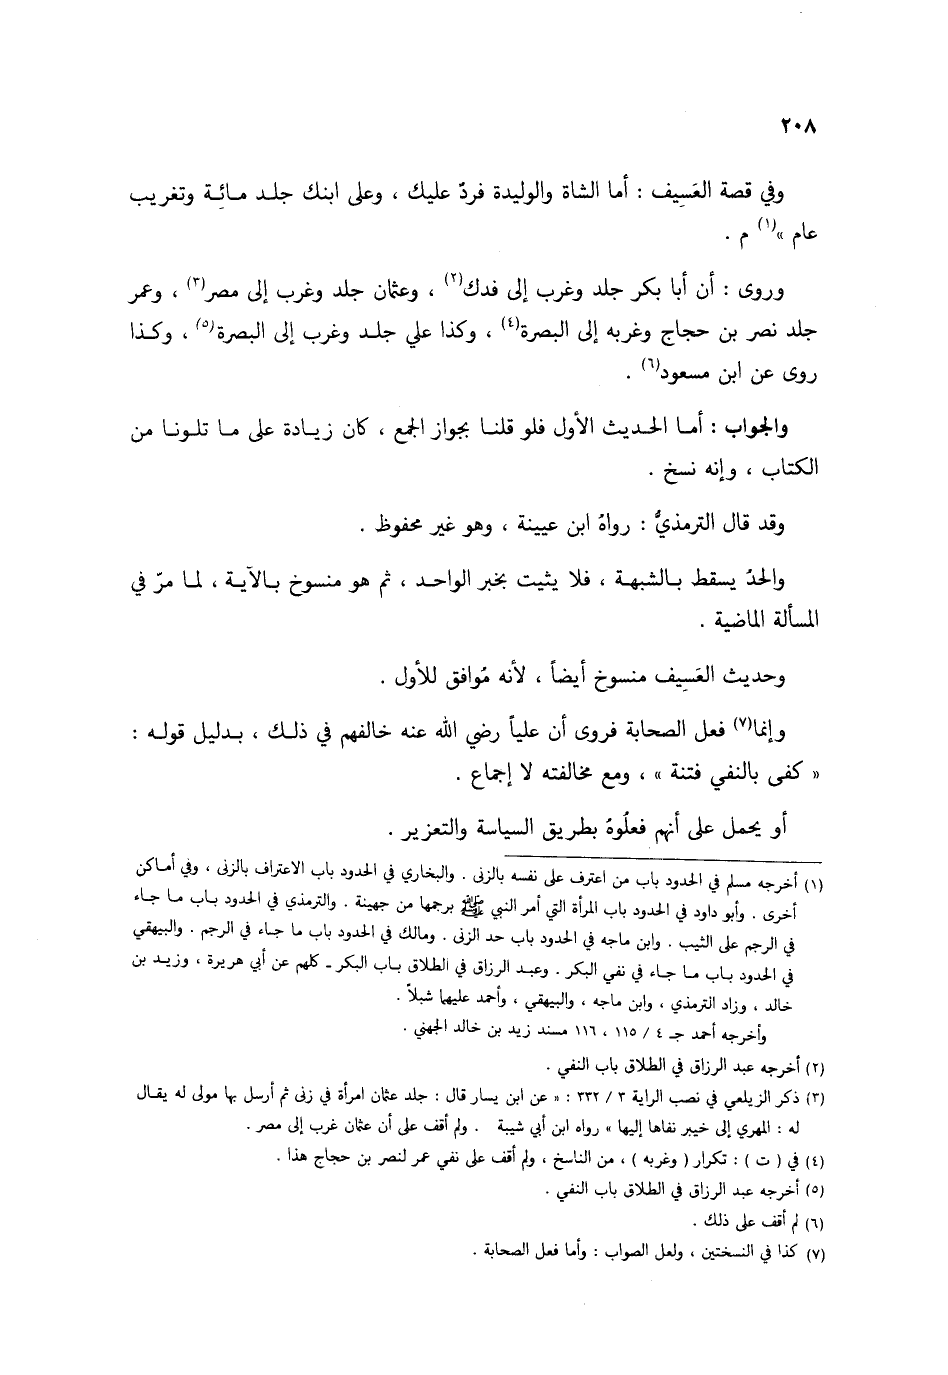 ٢٠٨
وفي قصة العَسِيف : أما الشاة والوليدة فردٌ عليك ، وعلى ابنك جلد مائة وتغريب
عام »(١) م .
وروى : أن أبا بكر جلد وغرب إلى فدك(٢) ، وعثمان جلد وغرب إلى مصر(٣) ، وعمر
جلد نصر بن حجاج وغربه إلى البصرة(٤) ، وكذا علي جلد وغرب إلى البصرة(٥) ، وكذا
روى عن ابن مسعود(٦) .
والجواب : أما الحديث الأول فلو قلنا بجواز الجمع ، كان زيادة على ما تلونا من
الكتاب ، وإنه نسخ .
وقد قال الترمذيُّ : رواهُ ابن عيينة ، وهو غير محفوظ .
والحدُ يسقط بالشبهة ، فلا يثبت بخبر الواحد ، ثم هو منسوخ بالآية ، لما مرّ في
المسألة الماضية .
وحديث العَسِيف منسوخ أيضاً ، لأنه مُوافق للأول .
وإنما(٧) فعل الصحابة فروى أن علياً رضي الله عنه خالفهم في ذلك ، بدليل قوله :
« كفى بالنفي فتنة » ، ومع مخالفته لا إجماع .
أو يحمل على أنهم فعلُوهُ بطريق السياسة والتعزير .
(١) أخرجه مسلم في الحدود باب من اعترف على نفسه بالزنى . والبخاري في الحدود باب الاعتراف بالزنى ، وفي أماكن
أخرى . وأبو داود في الحدود باب المرأة التي أمر النبي ﷺ برجمها من جهينة . والترمذي في الحدود باب ما جاء
في الرجم على الثيب . وابن ماجه في الحدود باب حد الزنى . ومالك في الحدود باب ما جاء في الرجم . والبيهقي
في الحدود باب ما جاء في نفي البكر . وعبد الرزاق في الطلاق باب البكر ـ كلهم عن أبي هريرة ، وزيد بن
خالد ، وزاد الترمذي ، وابن ماجه ، والبيهقي ، وأحمد عليهما شبلاً .
وأخرجه أحمد جـ ٤ / ١١٥ ، ١١٦ مسند زيد بن خالد الجهني .
(٢) أخرجه عبد الرزاق في الطلاق باب النفي .
(٣) ذكر الزيلعي في نصب الراية ٣ / ٣٣٢ : « عن ابن يسار قال : جلد عثمان امرأة في زنى ثم أرسل بها مولى له يقال
له : المهري إلى خيبر نفاها إليها » رواه ابن أبي شيبة . ولم أقف على أن عثمان غرب إلى مصر .
(٤) في ( ت ) : تكرار ( وغربه ) ، من الناسخ ، ولم أقف على نفي عمر لنصر بن حجاج هذا .
(٥) أخرجه عبد الرزاق في الطلاق باب النفي .
(٦) لم أقف على ذلك .
(٧) كذا في النسختين ، ولعل الصواب : وأما فعل الصحابة .